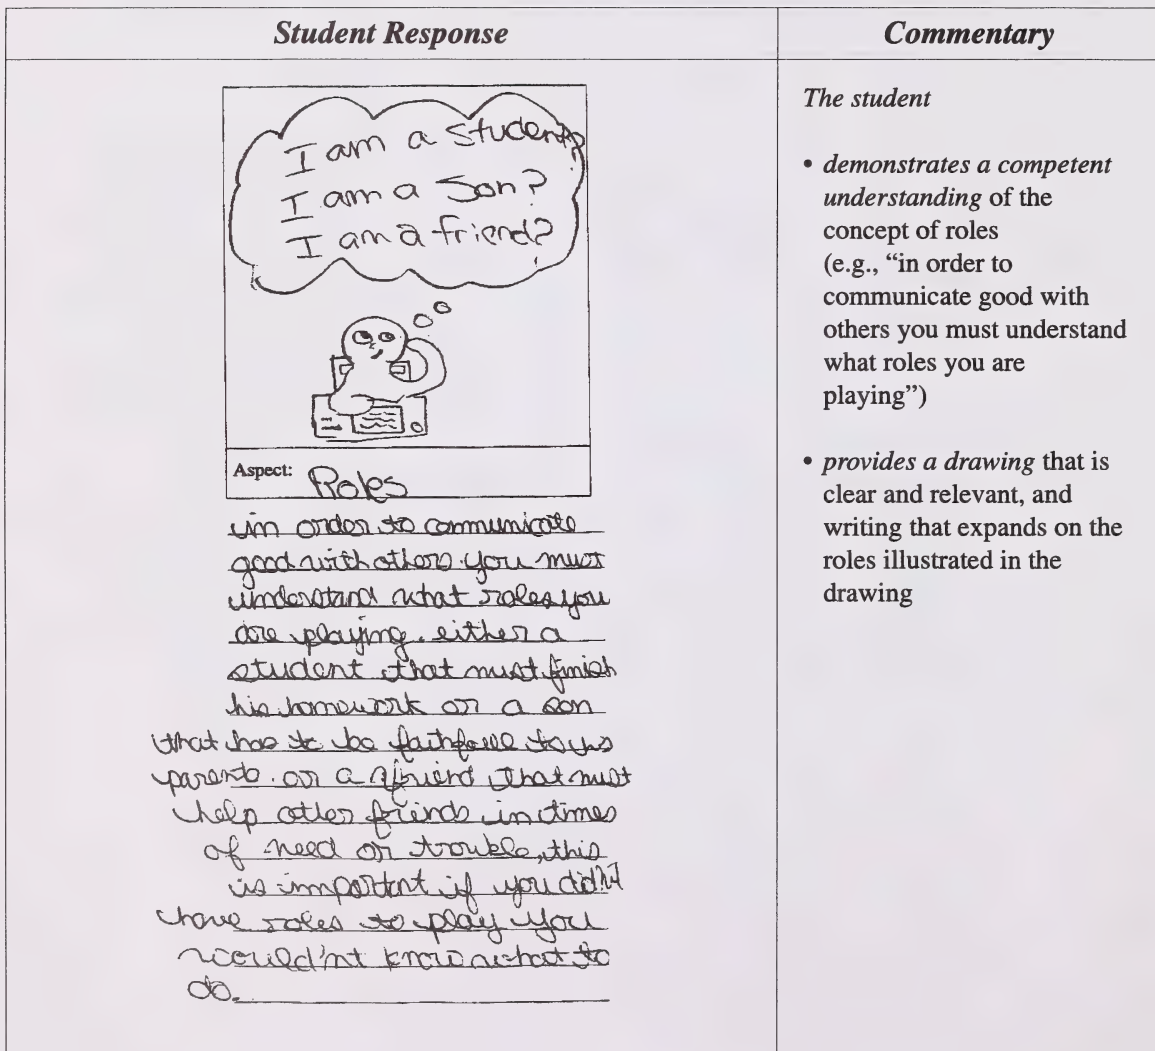 Student Response
Commentary
I am a student?
I am a Son?
I am a friend?
Aspect: Roles
in order to communicate
good with others you must
understand what roles you
are playing. either a
student that must finish
his homework or a son
that has to be faithfull to his
parents. or a friend that must
help other friends in times
of need or trouble, this
is important if you did'nt
have roles to play you
would'nt know what to
do.
The student
• demonstrates a competent
understanding of the
concept of roles
(e.g., “in order to
communicate good with
others you must understand
what roles you are
playing”)
• provides a drawing that is
clear and relevant, and
writing that expands on the
roles illustrated in the
drawing